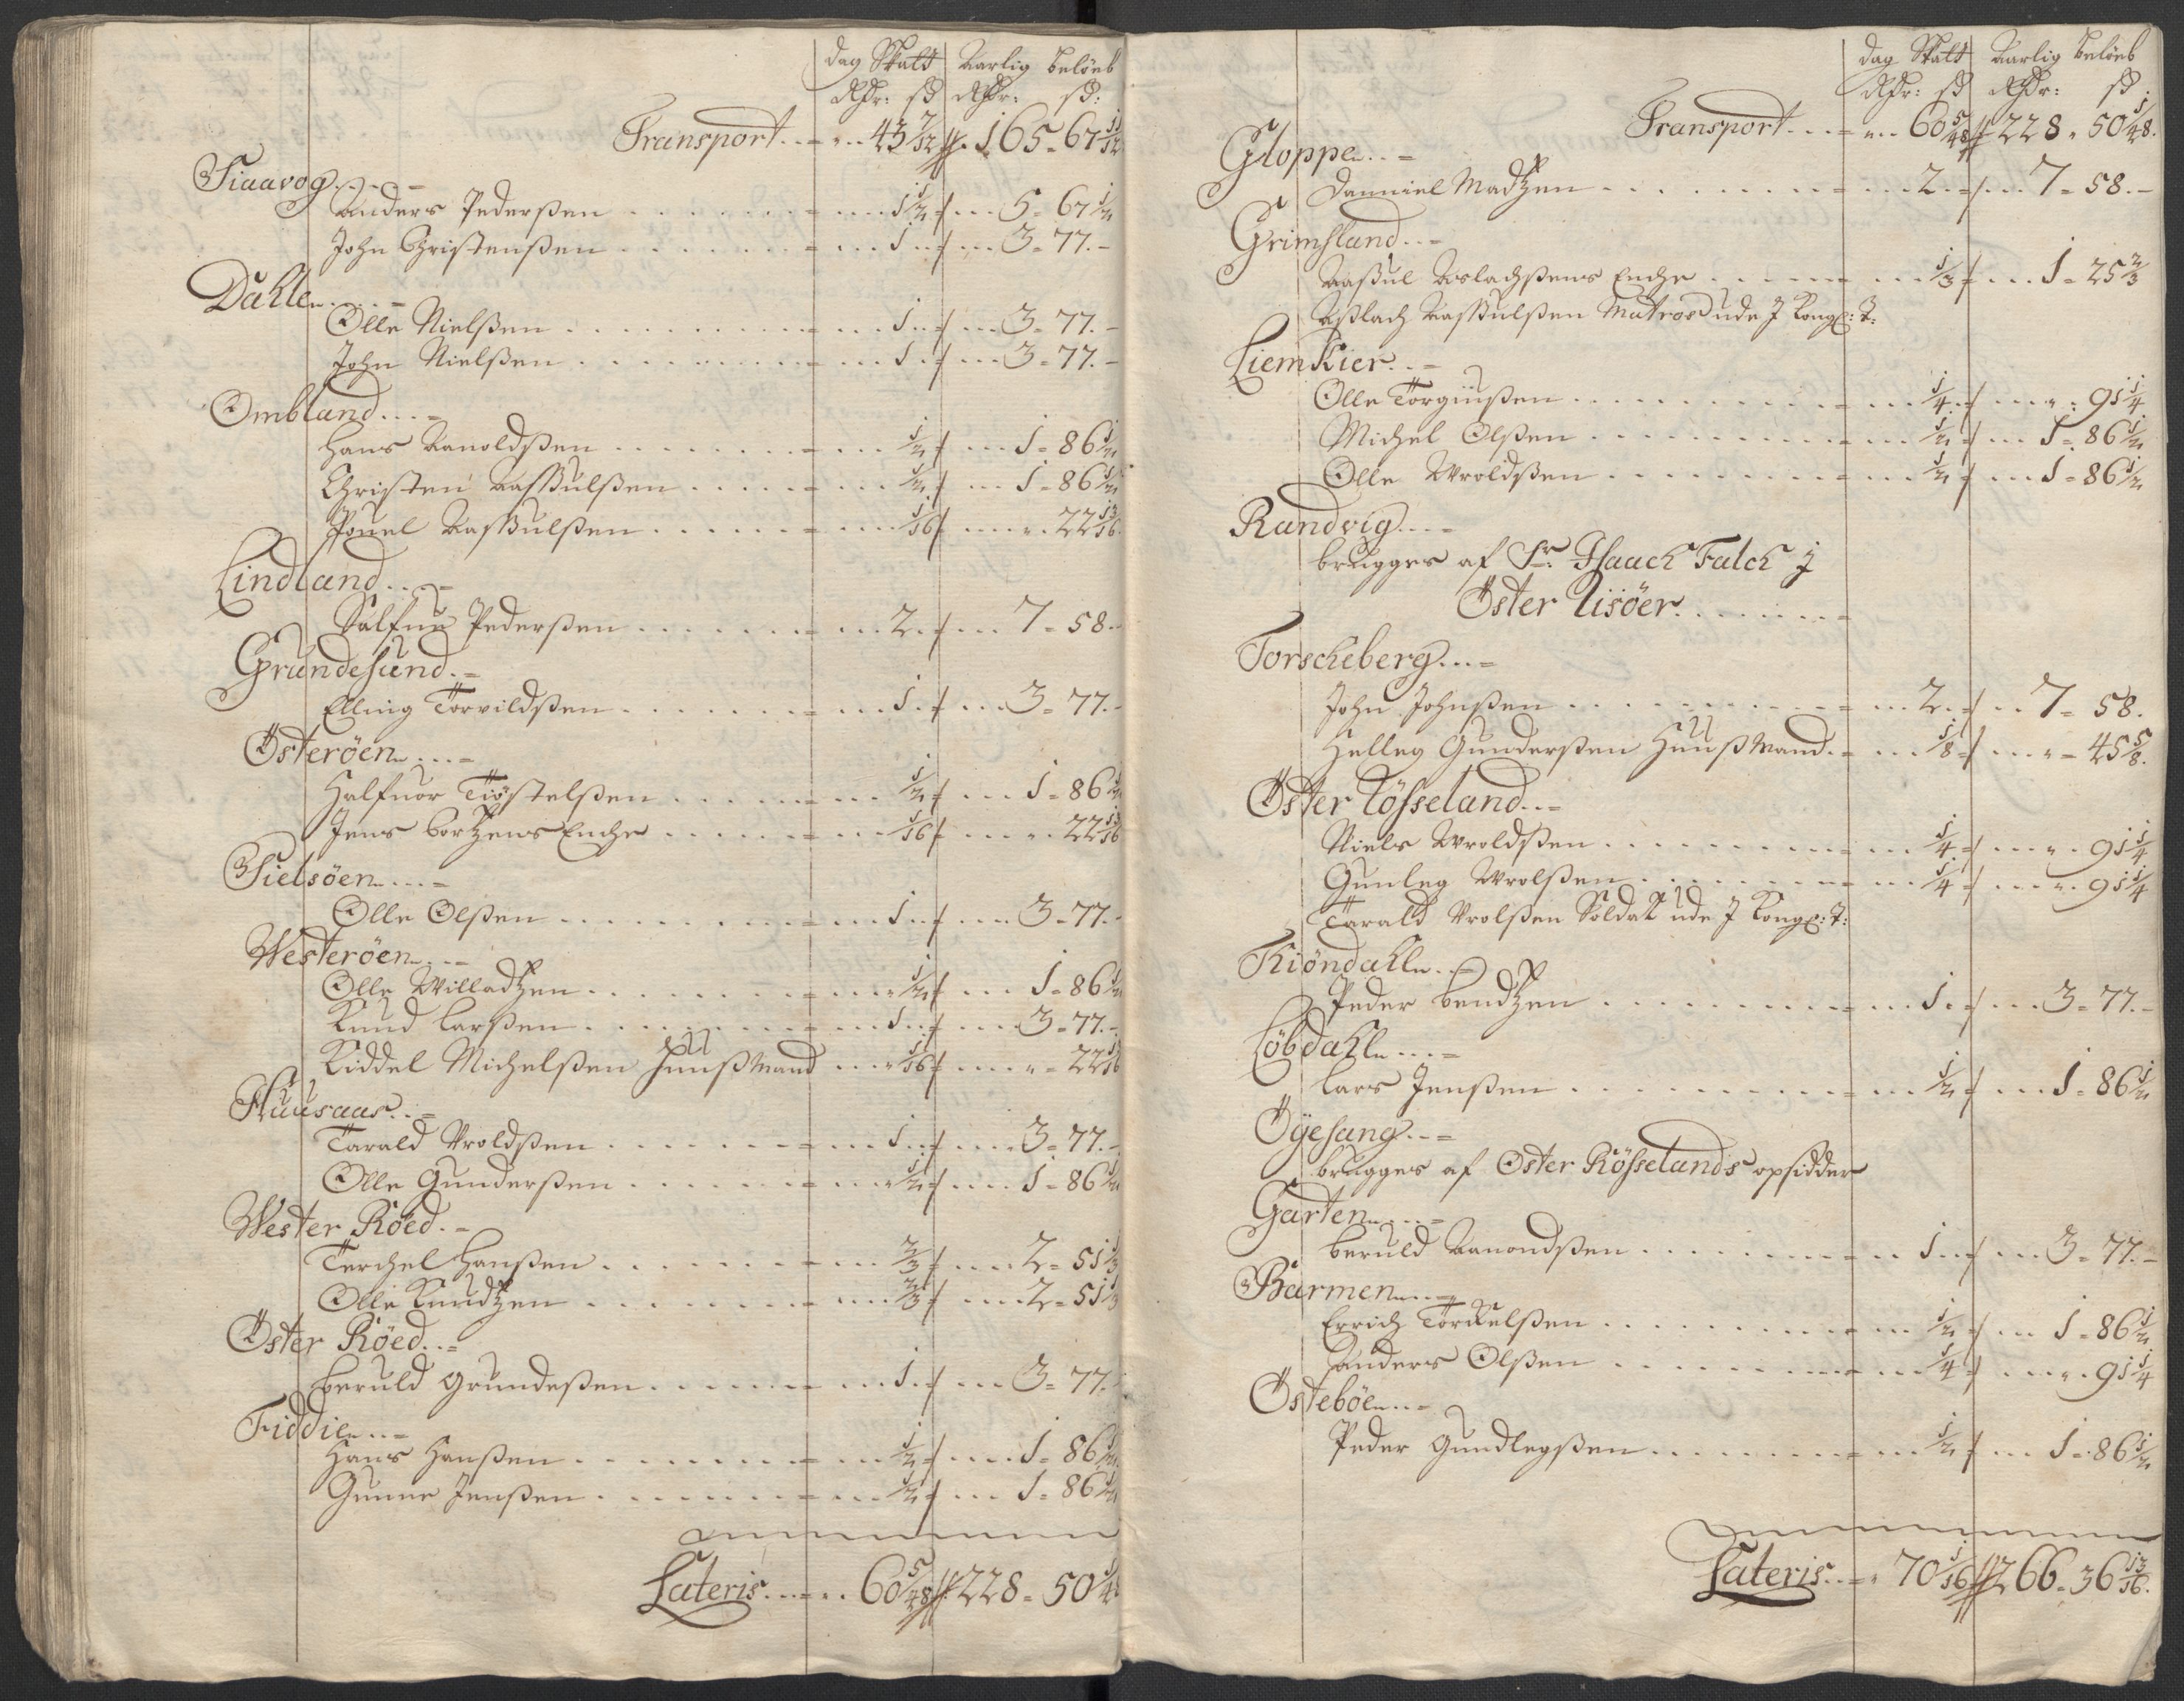 dag Skatt Aarlig beløeb
Rdr: sd Rdr: sd:
Transport 43 7/12 165 = 67 11/12
Siaavog
Anders Pederßen 1 1/2 5 = 67 1/2
John Christenßen 1 3 = 77
Dahle
Olle Nielßen 1 3 = 77
John Nielßen 1 3 = 77
Ombland
Hans Aanoldßen 1/2 1 = 86 1/2
Christen Aaßulßen 1/2 1 = 86 1/2
Pouel Aaßulßen 1/16 22 13/16
Lindland
Salfue Pederßen 2 7 = 58
Grundesund
Elling Torvildßen 1 3 = 77
Österöen
Halfuor Tiöstelßen 1/2 1 = 86 1/2
Jens Enche 1/16 22 13/16
Sielsöen
Olle Olßen 1 3 = 77
Westeröen
Olle Willadtzen 1/2 1 = 86 1/2
Knud Larßen 1 3 = 77
Kiddel Michelßen Huußmand 1/16 22 13/16
Huusaas
Tarald Vroldßen 1 3 = 77
Olle Gunderßen 1/2 1 = 86 1/2
Wester Röed
Terchel Hanßen 2/3 2 = 51 1/3
Olle Knudtzen 2/3 2 = 51 1/3
Öster Röed
Beruld Grundeßen 1 3 = 77
Fiddie
Hans Hanßen 1/2 1 = 86 1/2
Gunne Jenßen 1/2 1 = 86 1/2
Lateris 60 5/48 228 = 50 1/48
dag Skatt Aarlig beløeb
Rdr: sd Rdr: sd
Transport 60 5/48 228 = 50 1/48
Gloppe
Danniel Madtzen 2 7 = 58
Grimsland
Aaßul Aslachßens Enche 1/3 1 = 25 2/3
Aßlach Aaßulßen Matros ude J Kongl: T:
Liemkier
Olle Torgiußen 1/4 91 1/4
Michel Olßen 1/2 1 = 86 1/2
Olle Wroldßen 1/2 1 = 86 1/2
Randvig
brugges af Sr. Isaach Falch J
Öster Risöer
Torscheberg
John Johnßen 2 7 = 58
Helleg Gunderßen Huußmand 1/8 45 5/8
Öster Rösseland
Niels Wroldßen 1/4 91 1/4
Gunleg Wrolßen 1/4 91 1/4
Tarald Vrolßen Soldat ude J Kongl: T:
Kiöndahl
Peder Bendtzen 1 3 = 77
Löbdahl
Lars Jenßen 1/2 1 = 86 1/2
Öyesang
brugges af Öster Rösselands opsidder
Garten
Beruld Aanondßen 1 3 = 77
Barmen
Errich Torkelßen 1/2 1 = 86 1/2
Anders Olßen 1/4 91 1/4
Östeböe
Peder Gundlegßen 1/2 1 = 86 1/2
Lateris 70 1/16 266 = 36 13/16